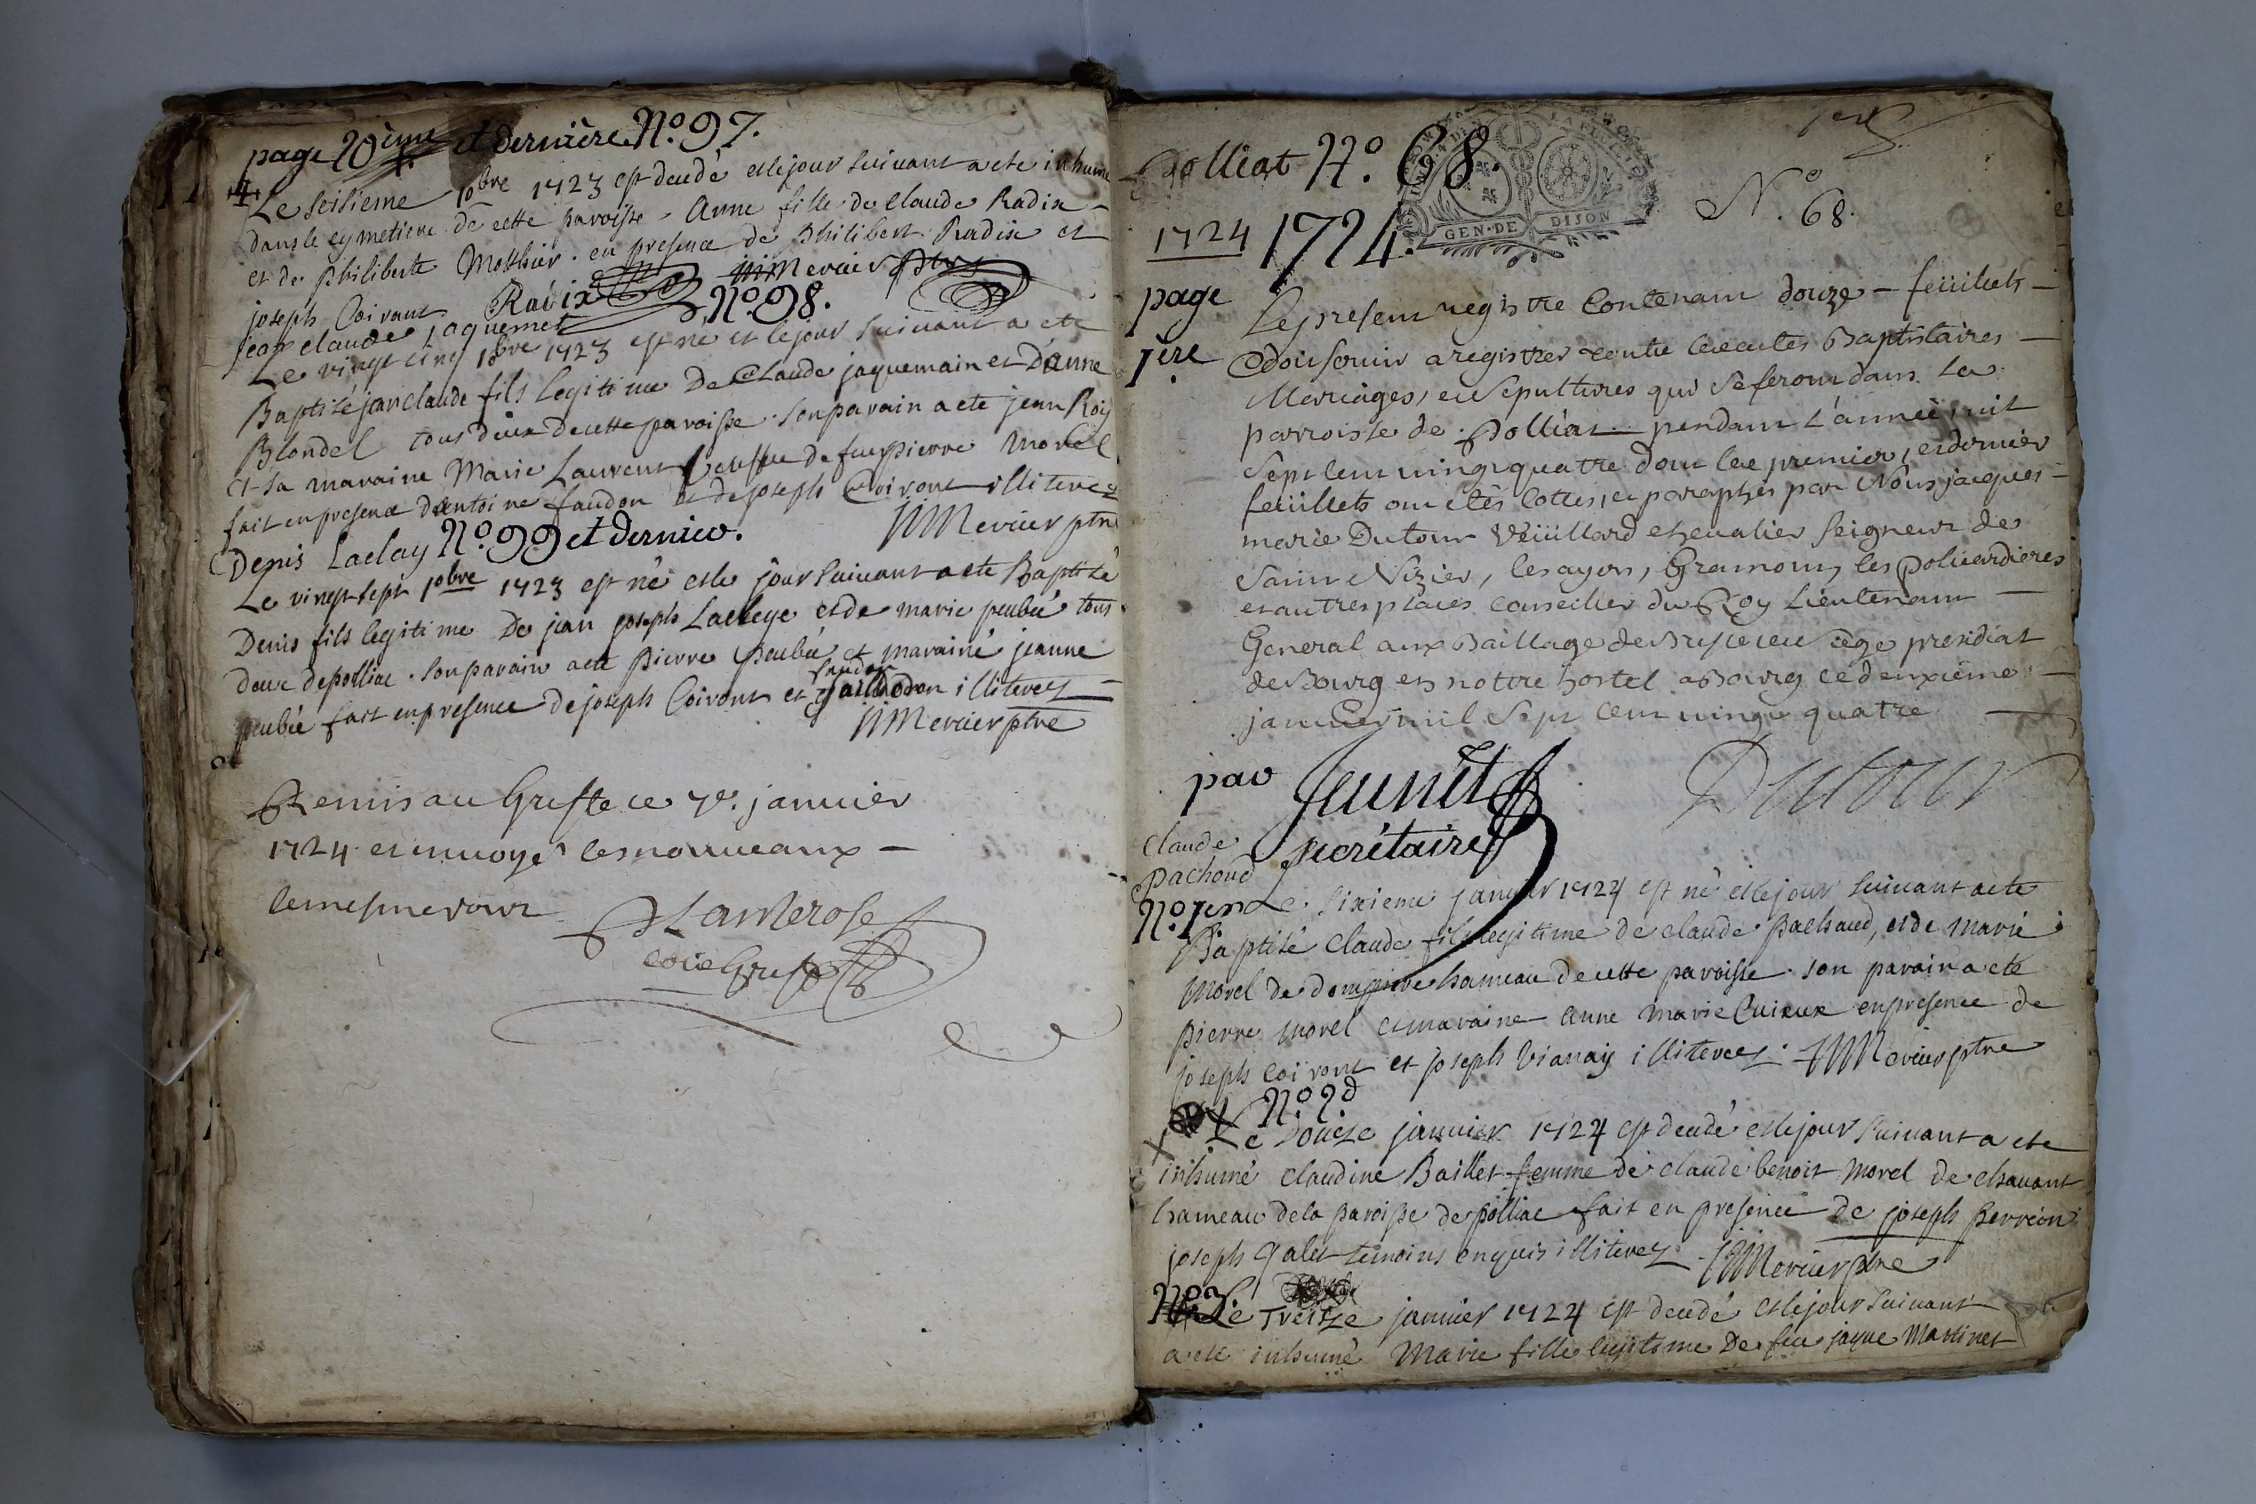 page 20ème et dernière N.o 97.
Le seisieme 10bre 1723 est decedé et le jour suivant a ete inhume
dans le cymetiere de cette paroisse. Anne fille de Claude Radix
et de philiberte Mothier. en presence de philibert Radix et
joseph Coiront Radix JJMercier ptre
N.o 98.
jean claude jaquemet
Le vingt cinq 10bre 1723 est né et le jour suivant a ete
Baptisé jean claude fils legitime De Claude jaquemain et d'anne
Blondel tous deux de cette paroisse. son parain a ete jean Roy
et sa maraine Marie Laurent veufve de feu pierre Morel
fait en presence d'antoine faudon et de joseph Coiront illiterez
JJMercier ptre
Denis Laclay N.o 99 et dernier.
Le vingt sept 10bre 1723 est né et le jour suivant a ete Baptisé
Denis fils legitime De jean joseph Lacleye et de marie peubée tous
deux de polliac. son parain a ete pierre peubée et maraine jeanne
faudon
peubée fait en presence de joseph Coiront et illiterez
JJMercier ptre
Remis au Greffe ce 7e. janvier
1724 et envoyé les nouveaux
le mesme jour
Lambrose
Polliat N.o 68.
N.o 68.
GEN·DE DIJON
1724 1724.
page
1ère
Le present registre Contenant douze feüillets
doit servir a registrer les actes Baptistaires
Mariages, et Sepultures qui se feront dans la
parroisse de Polliat pendant L'année mil
Sept Cent vingt quatre dont les premier, et dernier
feüillets ont etés Cottés, et paraphés par Nous jacques
marie Dutour Veüillard chevalier Seigneur de
Saint Nizier, les ayon, Gramont, les poliardieres
et autres places Conseiller du Roy Lieutenant
General aux Baillage de Bresse et siege presidial
de Bourg en nottre hostel a Bourg ce deuxieme
janvier mil Sept Cent vingt quatre
par Jeunet Dutour
secrétaire
Claude
pachoud
N.o 1er Le sixieme janvier 1724 est né et le jour suivant a ete
Baptisé Claude fils legitime de claude pachaud, et de Marie
Morel de dompierre hameau de cette paroisse. son parain a eté
pierre Morel et maraine Anne Marie Cuieux en presence de
joseph coiront et joseph Vianay illiterez. JJMercier ptre
N.o 2.d
Le Douze janvier 1724 est decedé et le jour suivant a ete
inhumé Claudine Baillet femme de claude benoit Morel de chavant
hameau de la paroisse de polliac fait en presence de joseph perreon
joseph Galet temoins enquis illiterez. JJMercier ptre
N.o 3. Le Treitze janvier 1724 est decedé et le jour suivant
a ete inhumé Marie fille legitime De feu jaque Martinet